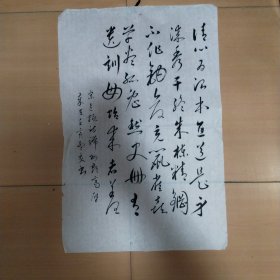 清心为治本直道是身
谋秀干终成栋精钢
不作钩仓充鼠雀喜
草尽狐兔愁史册有
遗训毋贻来者羞
宋包拯诗
书